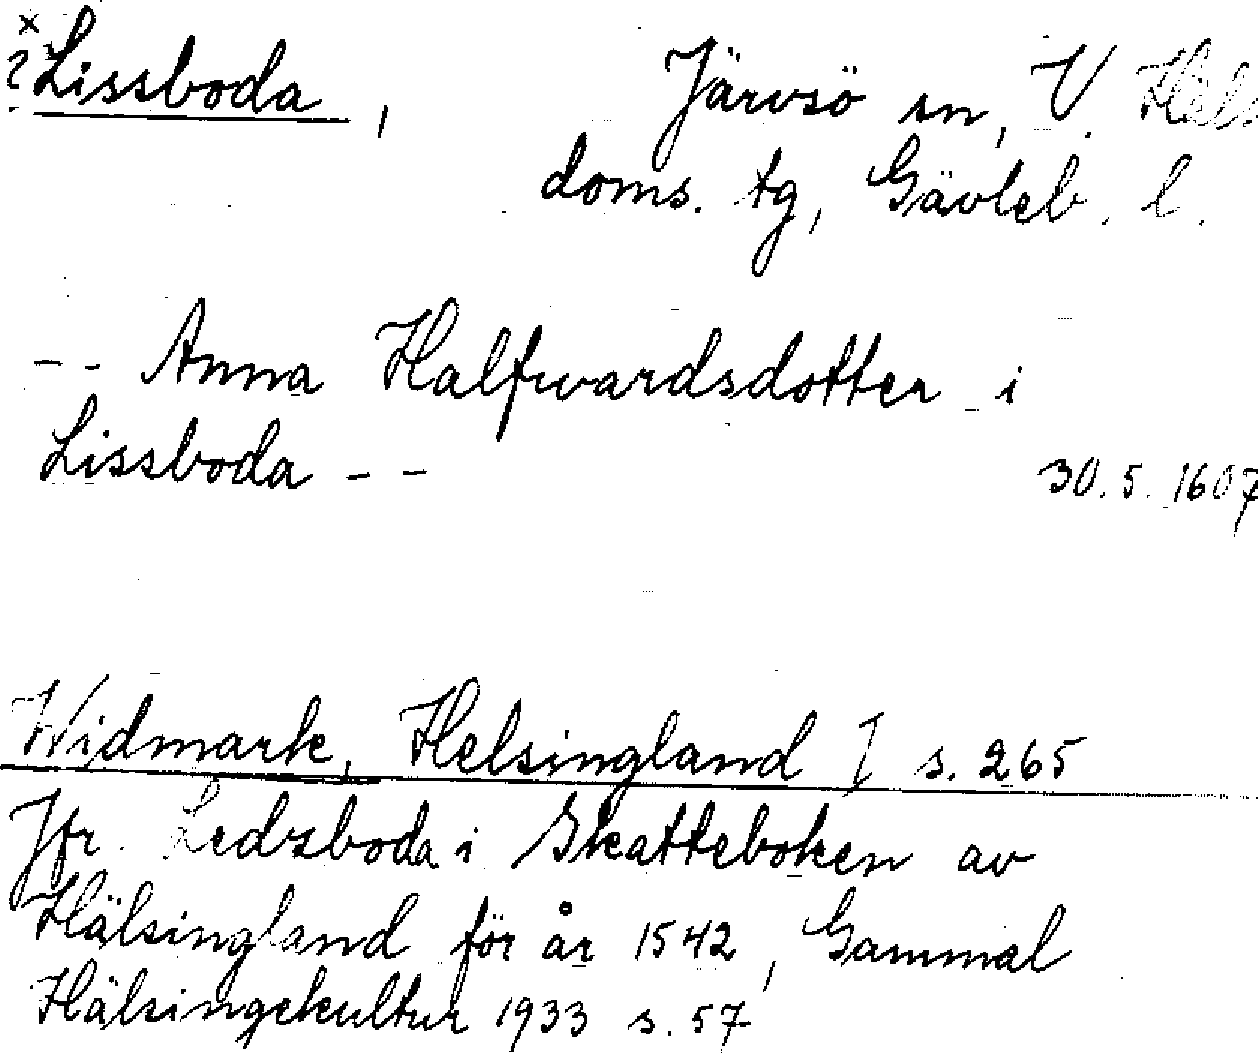 x
? Lissboda, Järvsö sn, V. Häls
doms. tg, Gävleb. l.
-- Anna Halfwardsdotter i
Lissboda -- 30.5.1607
Widmark, Helsingland I s. 265
Jfr. Ledzboda i Skatteboken av
Hälsingland för år 1542, Gammal
Hälsingekultur 1933 s. 57